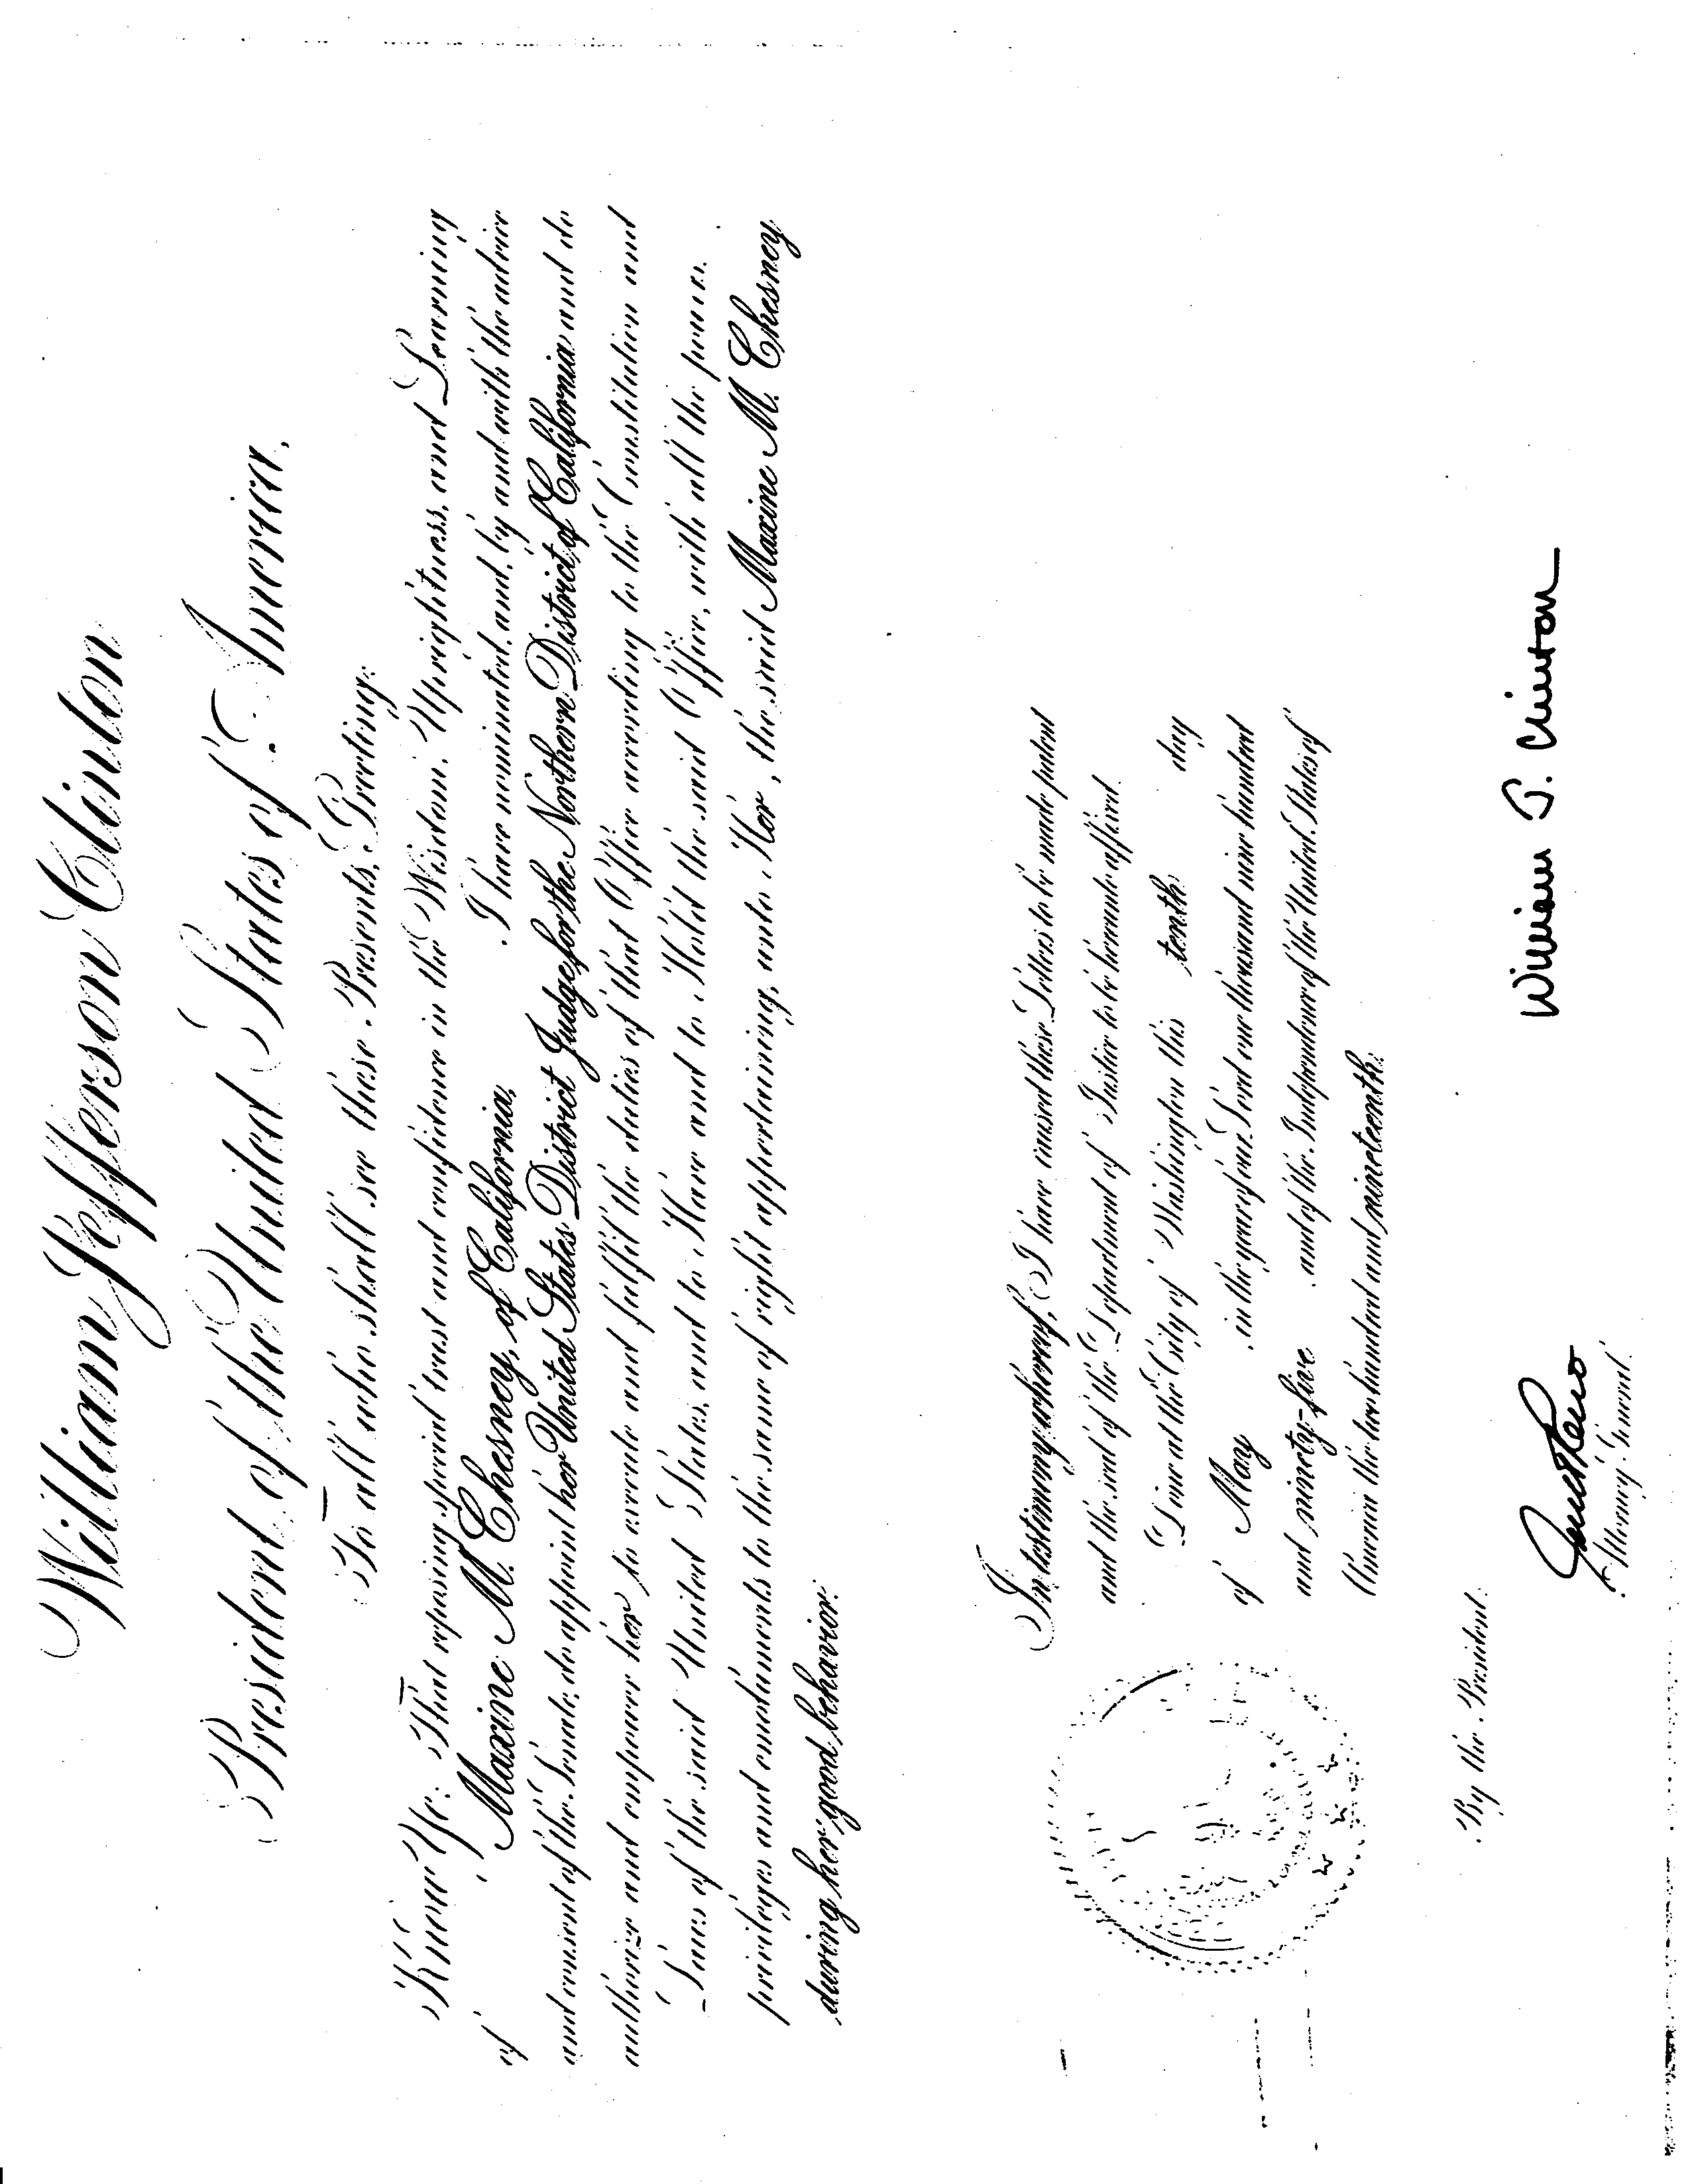 William Jefferson Clinton
President of the United States of America,
To all who shall see these Presents, Greeting:
Know Ye: That reposing special trust and confidence in the Wisdom, Uprightness, and Learning
of Maxine M. Chesney, of California, I have nominated, and, by and with the advice
and consent of the Senate, do appoint her United States District Judge for the Northern District of California and do
authorize and empower her to execute and fulfil the duties of that Office according to the Constitution and
Laws of the said United States, and to Have and to Hold the said Office, with all the powers,
privileges and emoluments to the same of right appertaining, unto Her, the said Maxine M. Chesney
during her good behavior.
In testimony whereof, I have caused these Letters to be made patent
and the seal of the Department of Justice to be hereunto affixed.
Done at the City of Washington this tenth day
of May in the year of our Lord one thousand nine hundred
and ninety-five and of the Independence of the United States of
America the two hundred and nineteenth.
By the President:
William J. Clinton
Janet Reno
Attorney General.